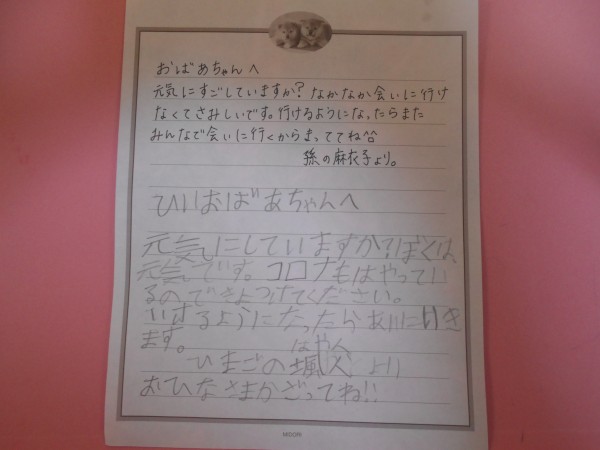 おばあちゃんへ
元気にすごしていますか？なかなか会いに行け
なくてさみしいです。行けるようになったらまた
みんなで会いに行くからまっててね^^
孫の麻衣子より。
ひいおばあちゃんへ
元気にしていますか？ぼくは、
元気です。コロナもはやってい
るのできよつけてください。
いけるようになったらあいにいき
ます。
はやと
ひまごの 颯人 より
おひなさまかざってね!!
MIDORI